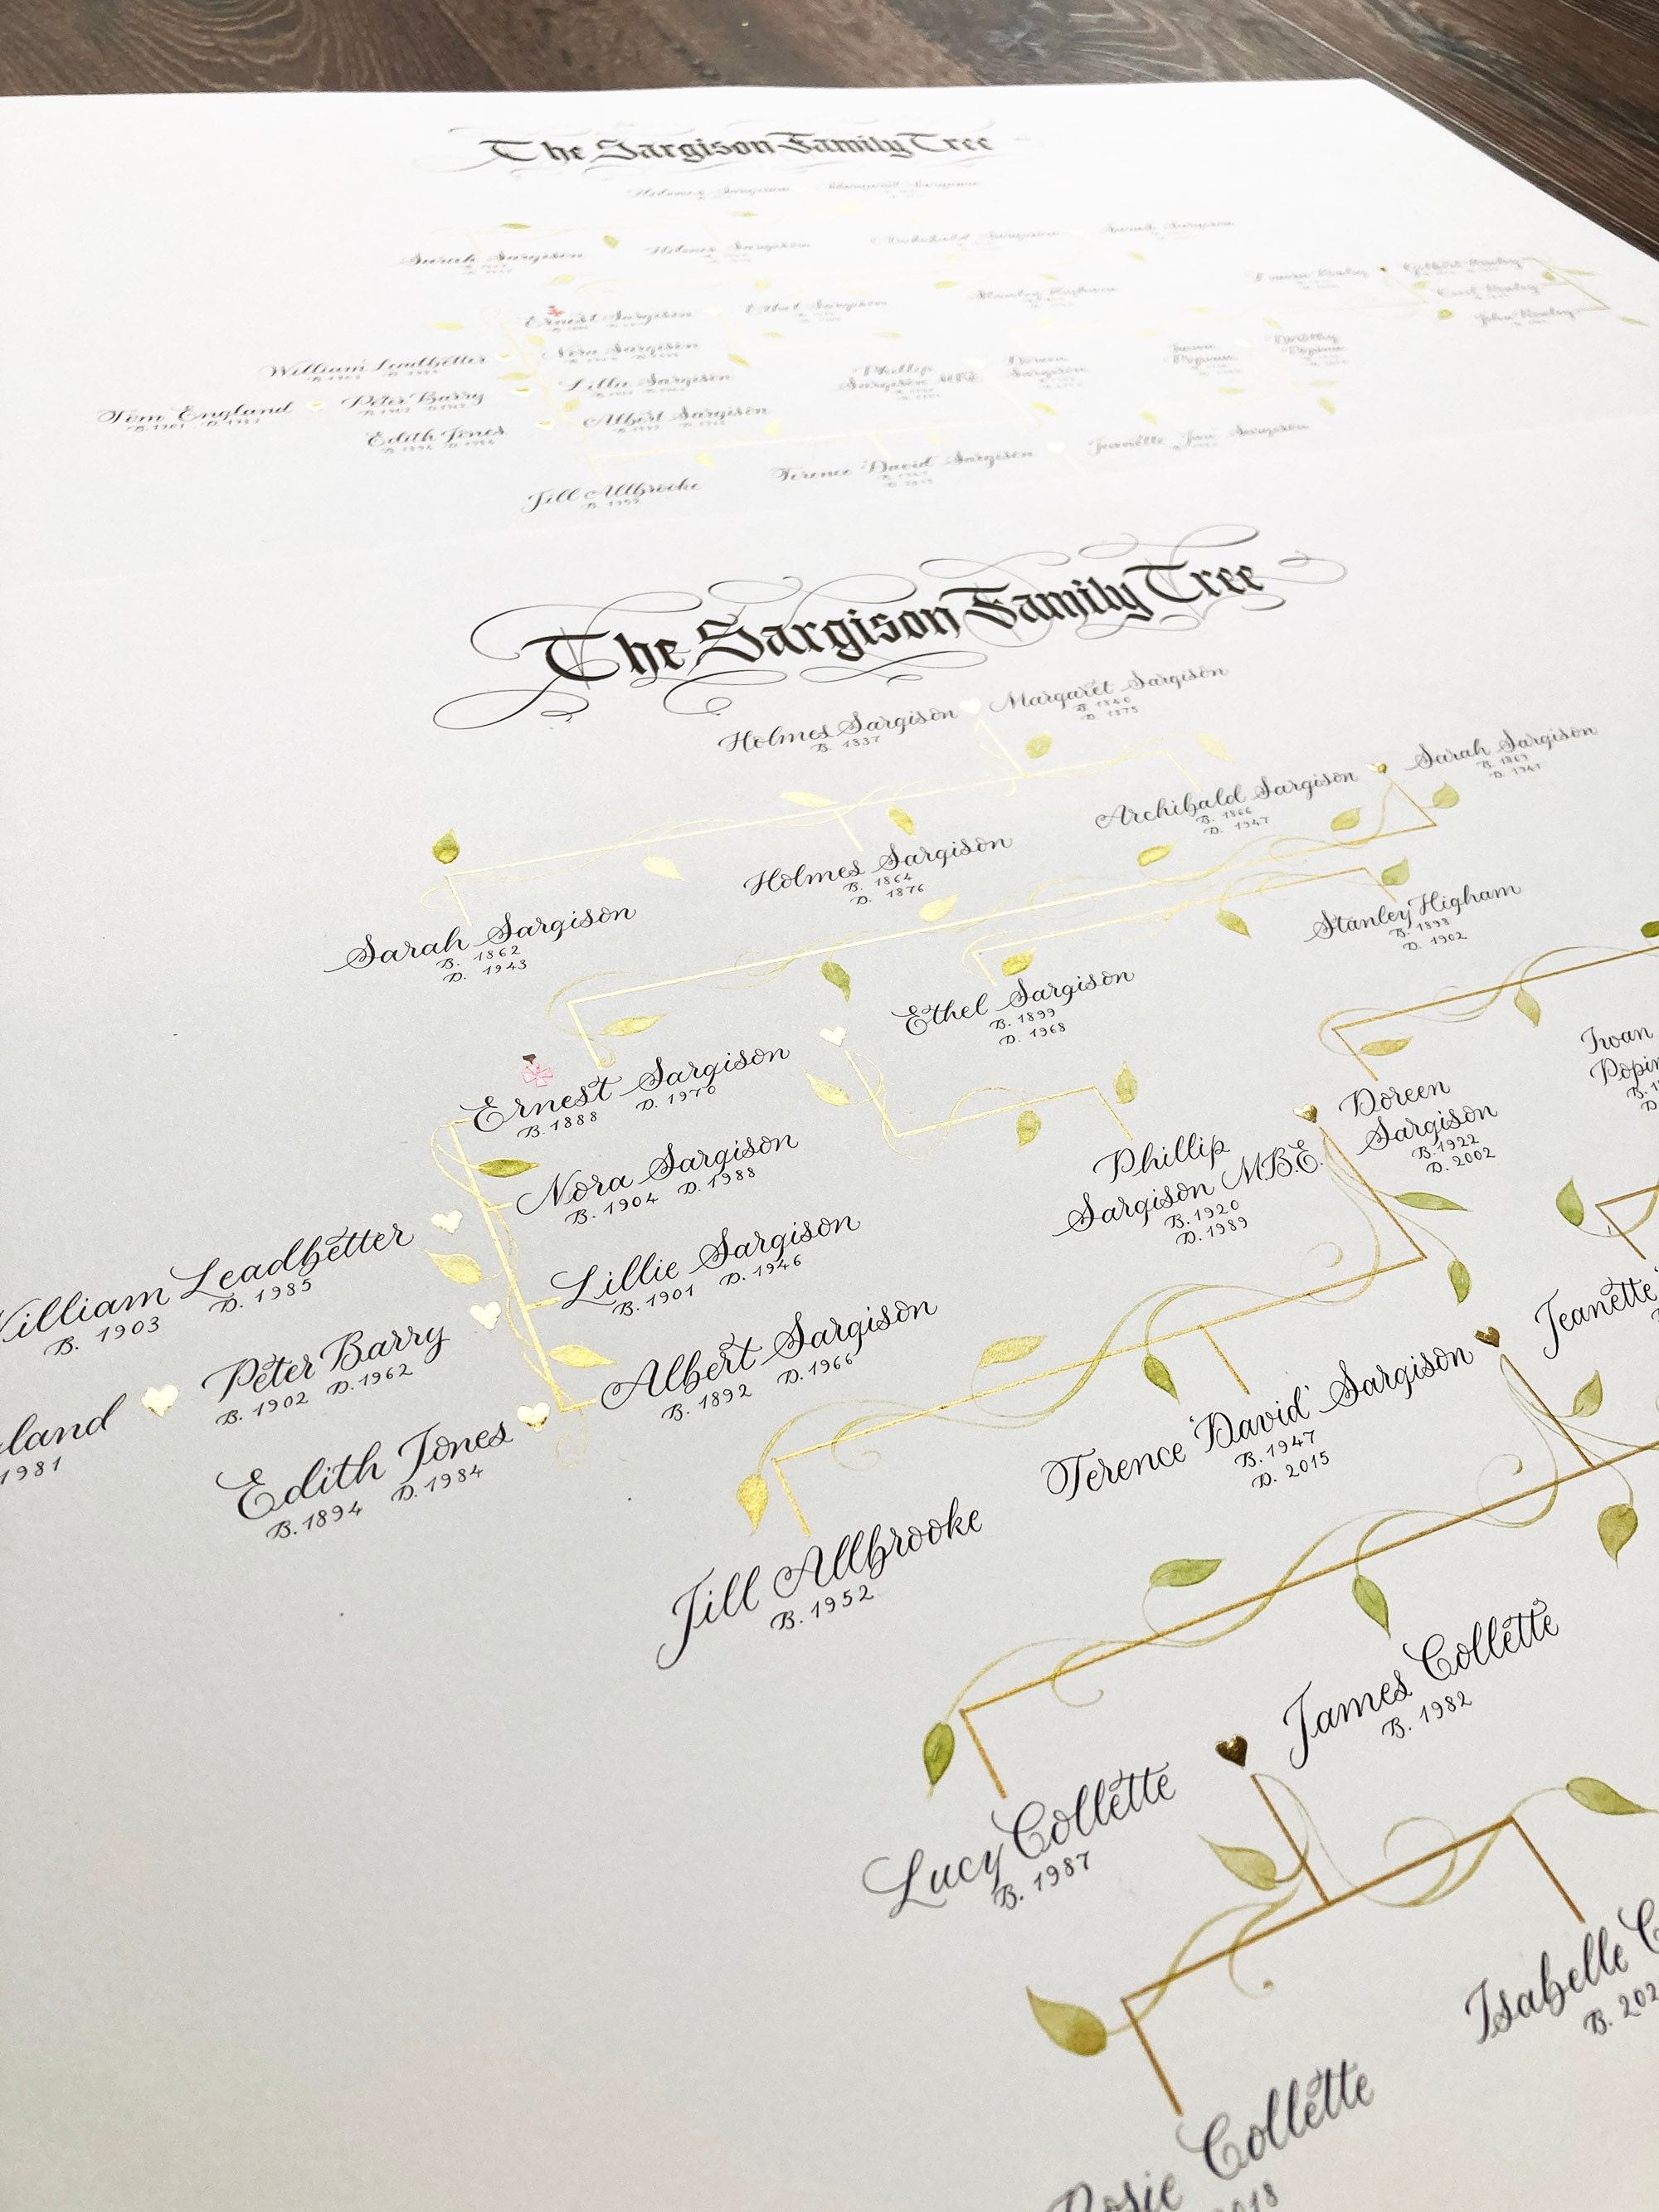 The Sargison Family Tree
Sarah Sargison
Holmes Sargison
Ernest Sargison
Ethel Sargison
Nora Sargison
William Leadbetter
Lillie Sargison
Phillip
Sargison MBE
Doreen
Sargison
Tom England
Peter Barry
Albert Sargison
Edith Jones
Terence 'David' Sargison
Jill Allbrooke
B. 1952
The Sargison Family Tree
Holmes Sargison
B. 1837
Margaret Sargison
B. 1840
D. 1875
Archibald Sargison
B. 1866
D. 1947
Sarah Sargison
B. 1869
D. 1941
Sarah Sargison
B. 1862
D. 1943
Holmes Sargison
B. 1864
D. 1876
Stanley Higham
B. 1898
D. 1902
Ethel Sargison
B. 1899
D. 1968
Ernest Sargison
B. 1888 D. 1970
Nora Sargison
B. 1904 D. 1988
William Leadbetter
B. 1903 D. 1985
Lillie Sargison
B. 1901 D. 1946
Peter Barry
B. 1902 D. 1962
land
1981
Albert Sargison
B. 1892 D. 1966
Edith Jones
B. 1894 D. 1984
Phillip
Sargison M.B.E.
B. 1920
D. 1989
Doreen
Sargison
B. 1922
D. 2002
Jill Allbrooke
B. 1952
Terence 'David' Sargison
B. 1947
D. 2015
Jeanette
Lucy Collette
B. 1987
James Collette
B. 1982
Isabelle C
B. 202
Rosie Collette
018